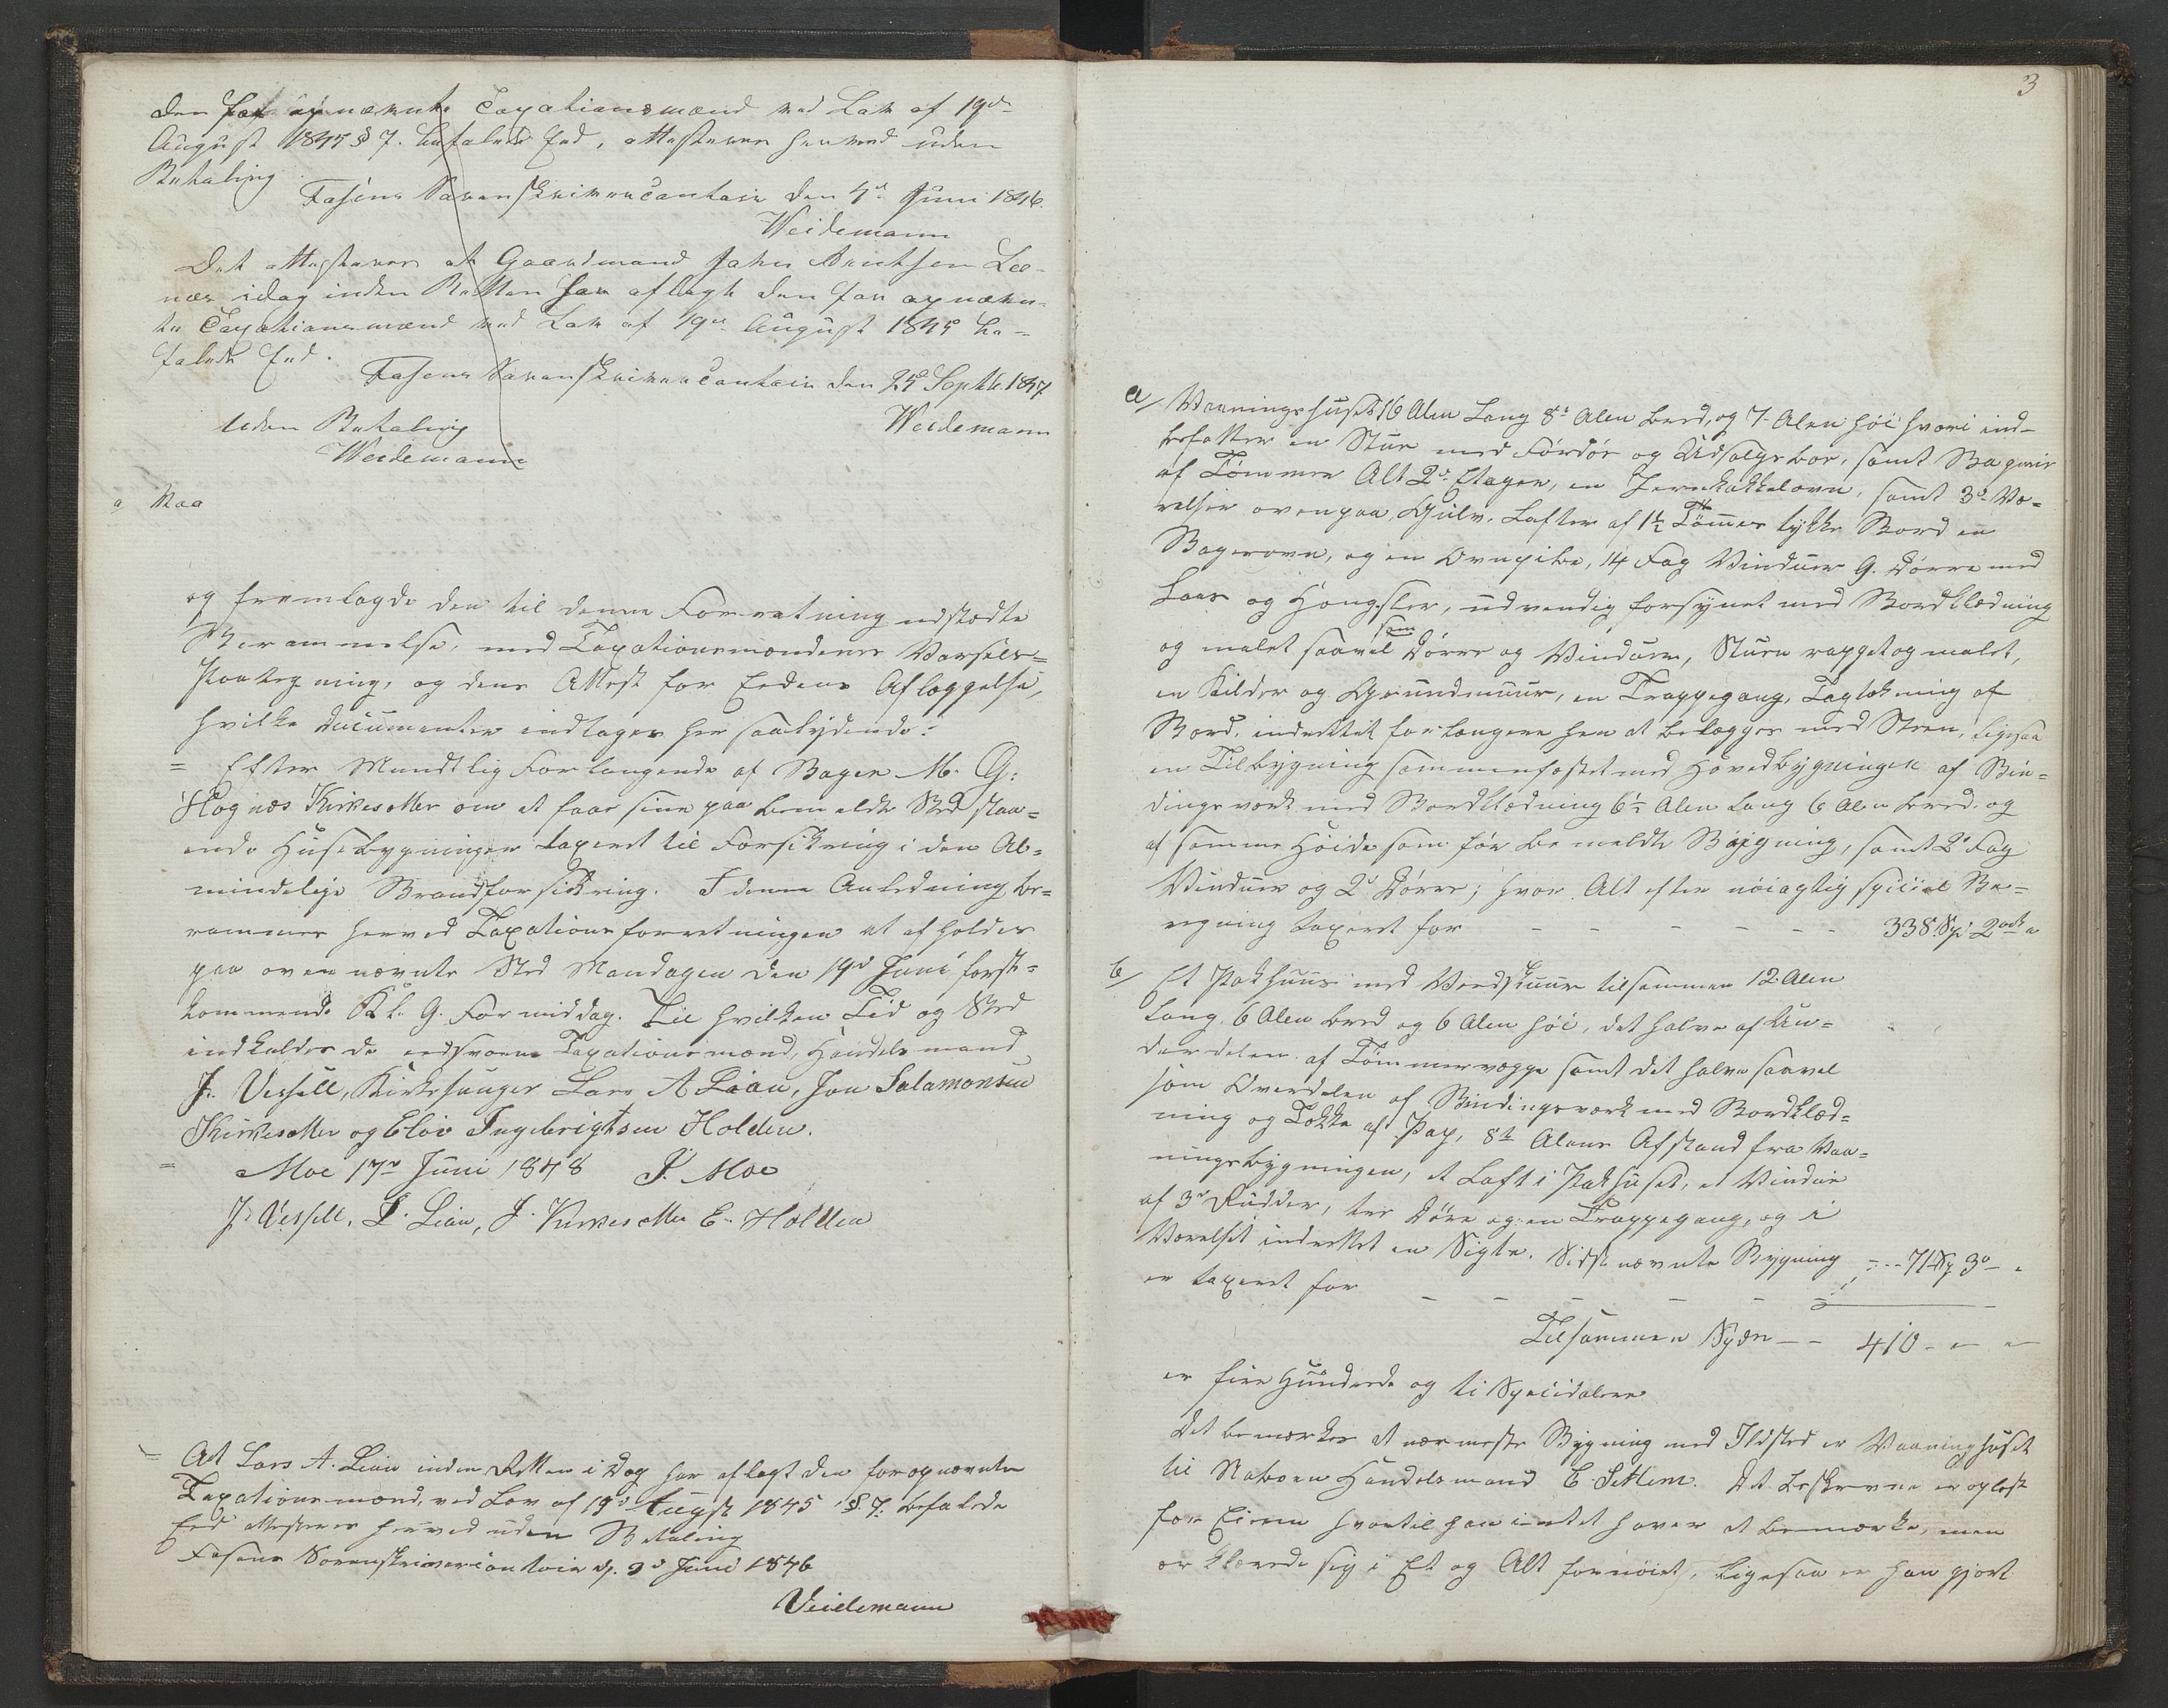 den for opnævnte Taxationsmænd ved Lov af 19de
August 1845 § 7. befalede Eed, attesteres herved uden
Betaling
Fosens Sorenskrivercontoir den 4de Juni 1846.
Weidemann
Det attesteres at Gaardmand John Bentsen Lee-
næs idag inden Retten har aflagt den for opnævn-
te Taxationsmænd ved Lov af 19de August 1845 be-
falede Eed.
Fosens Sorenskrivercontoir den 25de Septbr. 1847
uden Betaling
Weidemann
Weidemann
a, Vaa
og fremlagde den til denne Forretning udstædte
Berammelse, med Taxationsmændenes Varsels-
Paategning, og dens Attest for Eedens Aflæggelse,
hvilke Documenter indtages her saalydende:
= Efter Mundtlig Forlangende af Bager M. G.
Hognæs Kirkesætter om at faae sine paa bemeldte Sted staa=
ende Huusebygninger taxeret til Forsikring i den Al=
mindelige Brandforsikring. I denne Anledning be=
rammes herved Taxationsforretningen at afholdes
paa ovennævnte Sted Mandagen den 19de Juni først=
kommende Kl. 9. Formiddag. Til hvilken Tid og Sted
indkaldes de eedsvorne Taxationsmænd, Handelsmand
J. Vessell, Kirkesanger Lars A Lian, Jon Salamonsen
Kirkesætter og Elov Ingebrigtsen Holden.
= Moe 17de Juni 1848 P. Moe
J. Vessell, L. Lian, J. Kirkesætter E. Holden
= At Lars A. Lian inden Retten i Dag har aflagt den for opnævnte
Taxationsmænd, ved Lov af 19de August 1845 § 7. befalede
Eed attesteres herved uden Betaling
Fosens Sorenskrivercontoir d. 3de Juni 1846
Veidemann
3
a/ Vaaningshuset 16 Alen Lang 8 Alen bred, og 7 Alen høi hvori ind-
befatter en Stue med Fordør og Udsalgsbod, samt Bageri
af Tømmer Alt 2de Etager, en Jernkakkelovn, samt 3de Væ=
relser ovenpaa, Gulv, Lofter af 1½ Tommes tykke Bord en
Bagerovn, og en Ovnpibe, 14 Fag Vinduer 9. Dørre med
Laas og Hængsler, udvendig forsynet med Bordklædning
og malet saavel som Dørre og Vinduer, Stuen rappet og malet,
en Kilder og Grundmuur, en Trappegang, Tagtækning af
Bord, indrettet for længere hen at belægges med Steen, ligesaa
en Tilbygning sammenfæstet med Hovedbygningen af Bin=
dingsværk med Bordklædning 6½ Alen lang 6 Alen bred og
af samme Høide som før bemeldte Bygning, samt 2de Fag
Vinduer og 2de Dørre; hvor Alt efter nøiagtig speciel Be=
regning taxeret for - - - - - - 338 Sp. 2 ort "
b/ Et Pakhuus med Vedskuur tilsammen 12 Alen
lang, 6 Alen bred og 6 Alen høi, det halve af Un=
derdelen af Tømmervægge samt det halve saavel
som Overdelen af Bindingsværk med Bordklæd=
ning og Tække af Pap, 8½ Alens Afstand fra Vaa=
ningsbygningen, et Loft i Pakhuset, et Vindue
af 3de Rudder, tre Døre og en Trappegang, og i
Værelset indrettet en Sigte. Sidstnævnte Bygning
er taxeret for - - - - - - 71 Sp 3 "
Tilsammen Spdr - - 410 - " "
er fire Hundrede og ti Speciedalere
Det bemærkes at nærmeste Bygning med Ildsted er Vaaninghuset
til Naboen Handelsmand E. Settem. Det beskrevne er oplæst
for Eieren hvortil han intet haver at bemærke, men
erklærede sig i Et og Alt fornøiet, ligesaa er han gjort